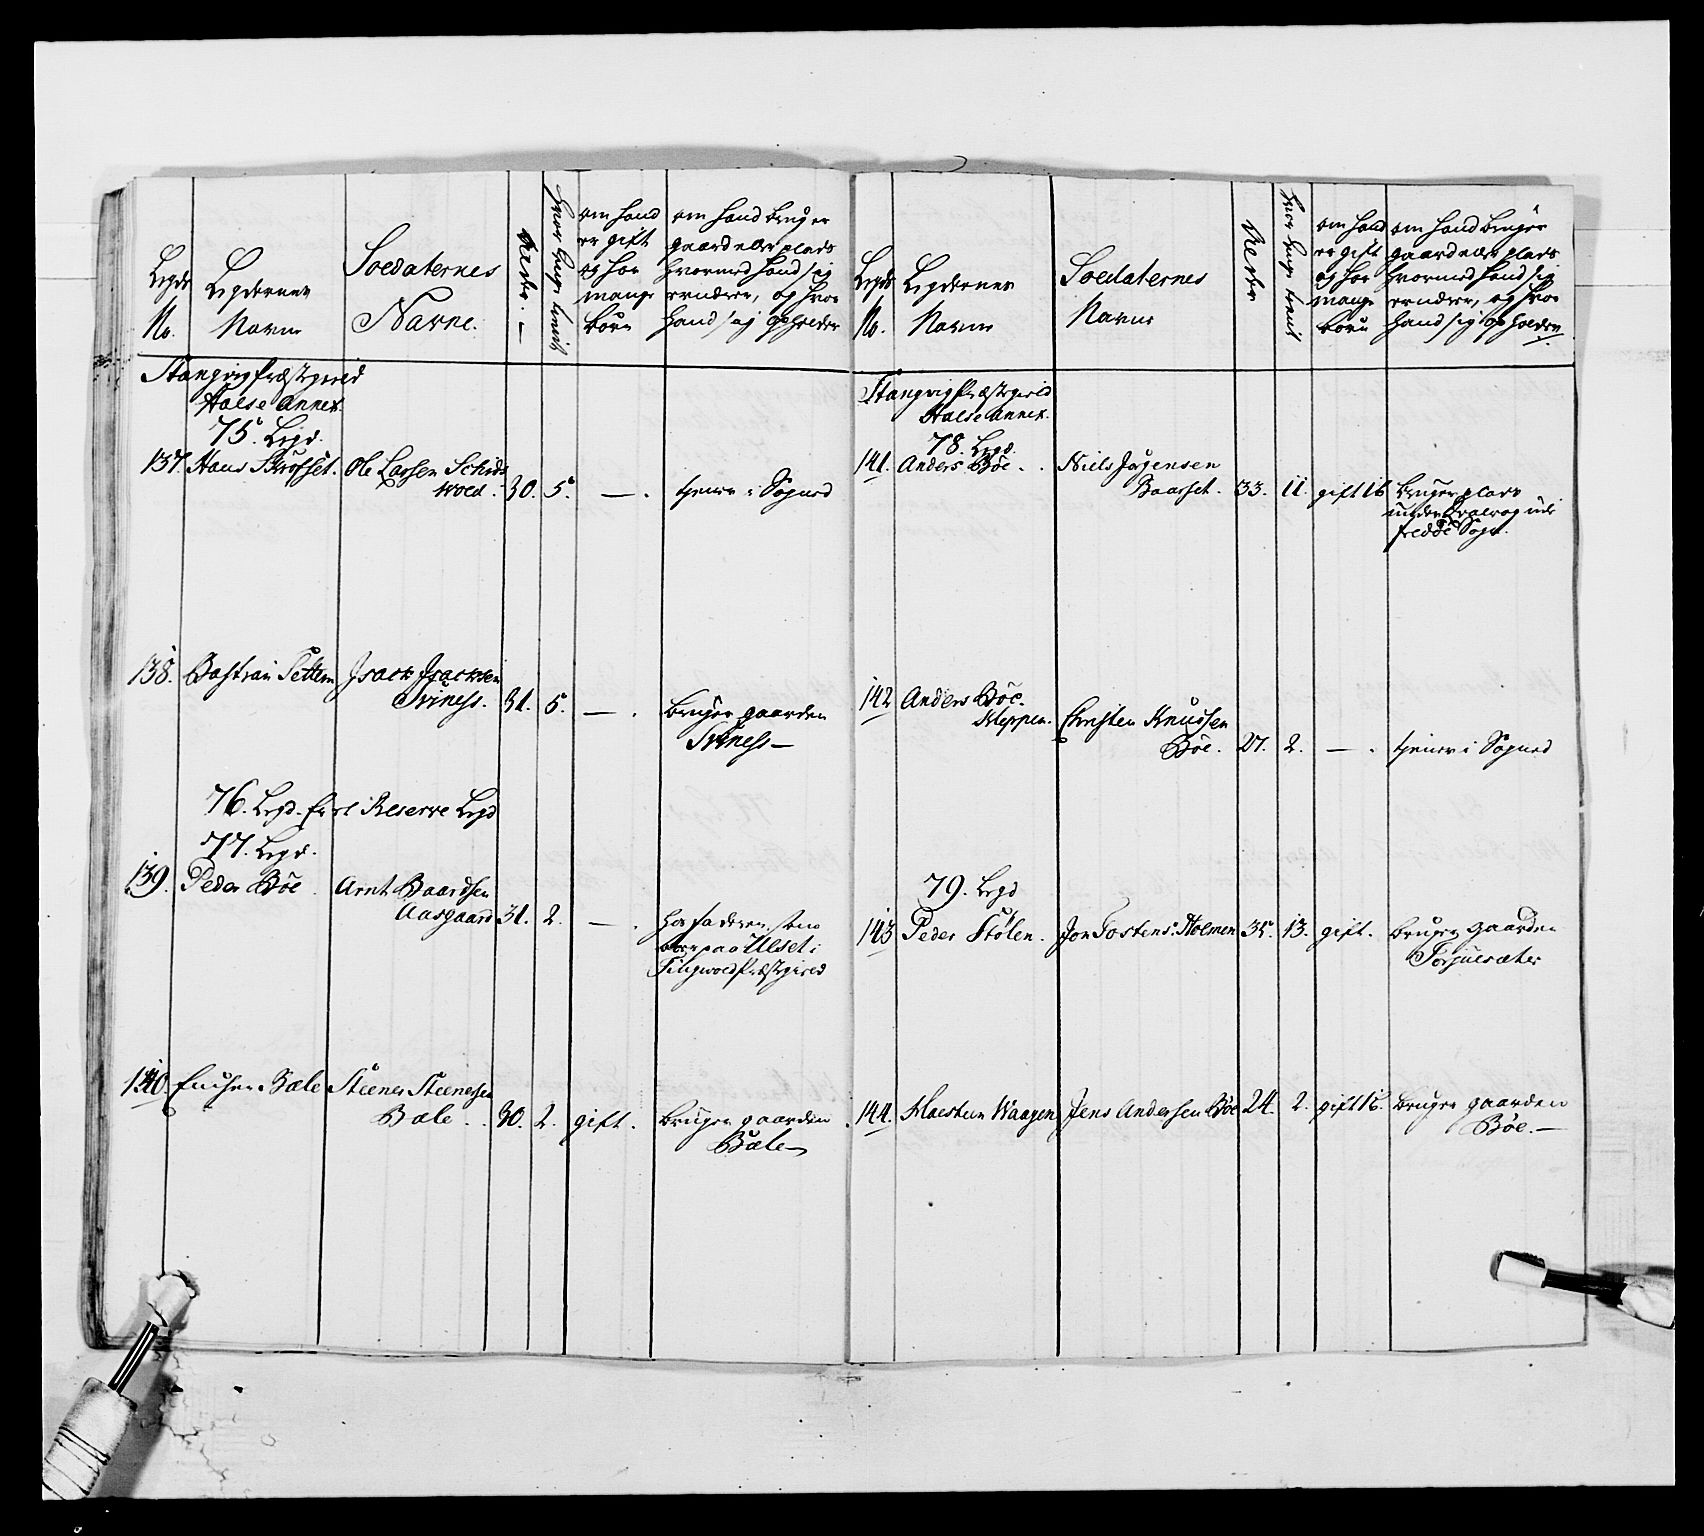 Legds
No.
Legdernes
Navne
Soldaternes
Navne.
Alder.
hvor lenge tient
om hand
er gift
og hvor
mange
børn
om hand bruger
gaard eller plads
hvormed hand sig
ernærer, og hvor
hand sig opholder
Stangvig Præstegield
Halse Annex.
75. Legd.
137. Hans Brøsset. Ole Larsen Schids
Wold. 30. 5. — . tiener i Sogned
138. Bastian Settem Isack Isacksen
Sviness. 31. 5. — . bruger gaarden
Sviness —
76. Legd. er Reserve Legd
77. Legd.
139. Peder Bøe Arnt Baardsen
Aasgaard 31. 2. — . hos faderen som
boer paa Ulset i
Tingvold Præstegield
140. Einer Bæle Steener Steenersen
Bæle . 30. 2. gift. bruger gaarden
Bæle
Legds
No.
Legdernes
Navne
Soldaternes
Navne
Alder
hvor lenge tient
om hand
er gift
og hvor
mange
børn
om hand bruger
gaard eller plads
hvormed hand sig
ernærer, og hvor
hand sig opholder
Stangvig Præstegield
Halse Annex.
78. Legd.
141. Anders Bøe . . Niels Jørgensen
Baarset. 33. 11. gift 1 b bruger plads
under
Sogn.
142 Anders Bøe
Kleppen. Christen Knudsen
Bøe. 27. 2. — . tiener i Sogned
79. Legd
143 Peder Stølen. Jon Tostens: Holmen 35. 13. gift. bruger gaarden
Torjulsæter
144. Maesteen Waagen Jens Andersen Bøe 24. 2. gift 1 b. bruger gaarden
Bøe. —